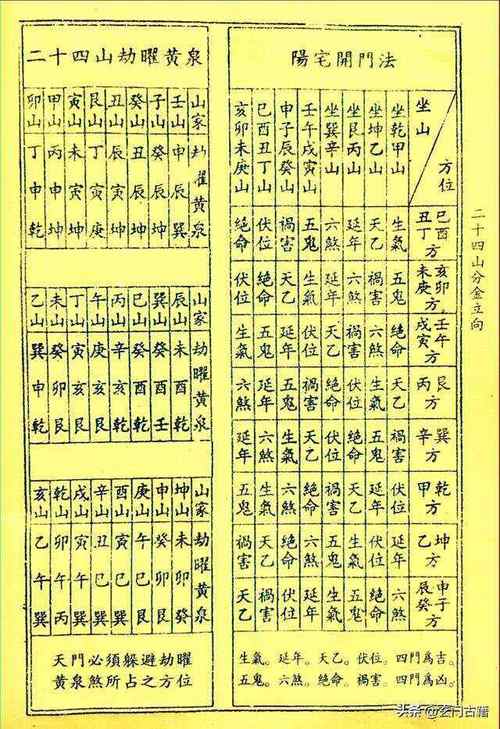 陽宅開門法
坐山
方位
坐乾甲山
坐坤乙山
坐艮丙山
坐巽辛山
壬午戌寅山
申子辰癸山
巳酉丑丁山
亥卯未庚山
絕命 伏位 禍害 五鬼 六煞 延年 天乙 生氣 巳酉丑丁方
伏位 絕命 天乙 生氣 延年 六煞 禍害 五鬼 亥卯未庚方
生氣 五鬼 延年 伏位 天乙 禍害 六煞 絕命 壬午戌寅方
六煞 延年 五鬼 禍害 絕命 伏位 生氣 天乙 艮丙方
延年 六煞 生氣 天乙 伏位 絕命 五鬼 禍害 巽辛方
五鬼 生氣 六煞 絕命 禍害 天乙 延年 伏位 乾甲方
禍害 天乙 絕命 六煞 五鬼 生氣 伏位 延年 坤乙方
天乙 禍害 伏位 延年 生氣 五鬼 絕命 六煞 申子辰癸方
生氣。延年。天乙。伏位。四門爲吉。
五鬼。六煞。絕命。禍害。四門爲凶。
二十四山分金立向
二十四山劫曜黃泉
山家劫曜黃泉
壬山申辰巽
子山巳辰坤
丑山辰寅坤
艮山丁寅坤
寅山未寅坤
甲山丙申坤
卯山丁申乾
山家劫曜黃泉
辰山未酉乾
巽山癸酉壬
巳山癸酉乾
丙山辛亥乾
午山庚亥艮
丁山寅亥艮
未山癸卯艮
乙山巽申乾
山家劫曜黃泉
坤山未卯癸
庚山午巳艮
申山癸卯艮
酉山寅巳巽
辛山丑巳巽
戌山寅午巽
乾山卯午丙
亥山乙午巽
天門必須躲避劫曜
黃泉煞所占之方位
头条@玄门古籍